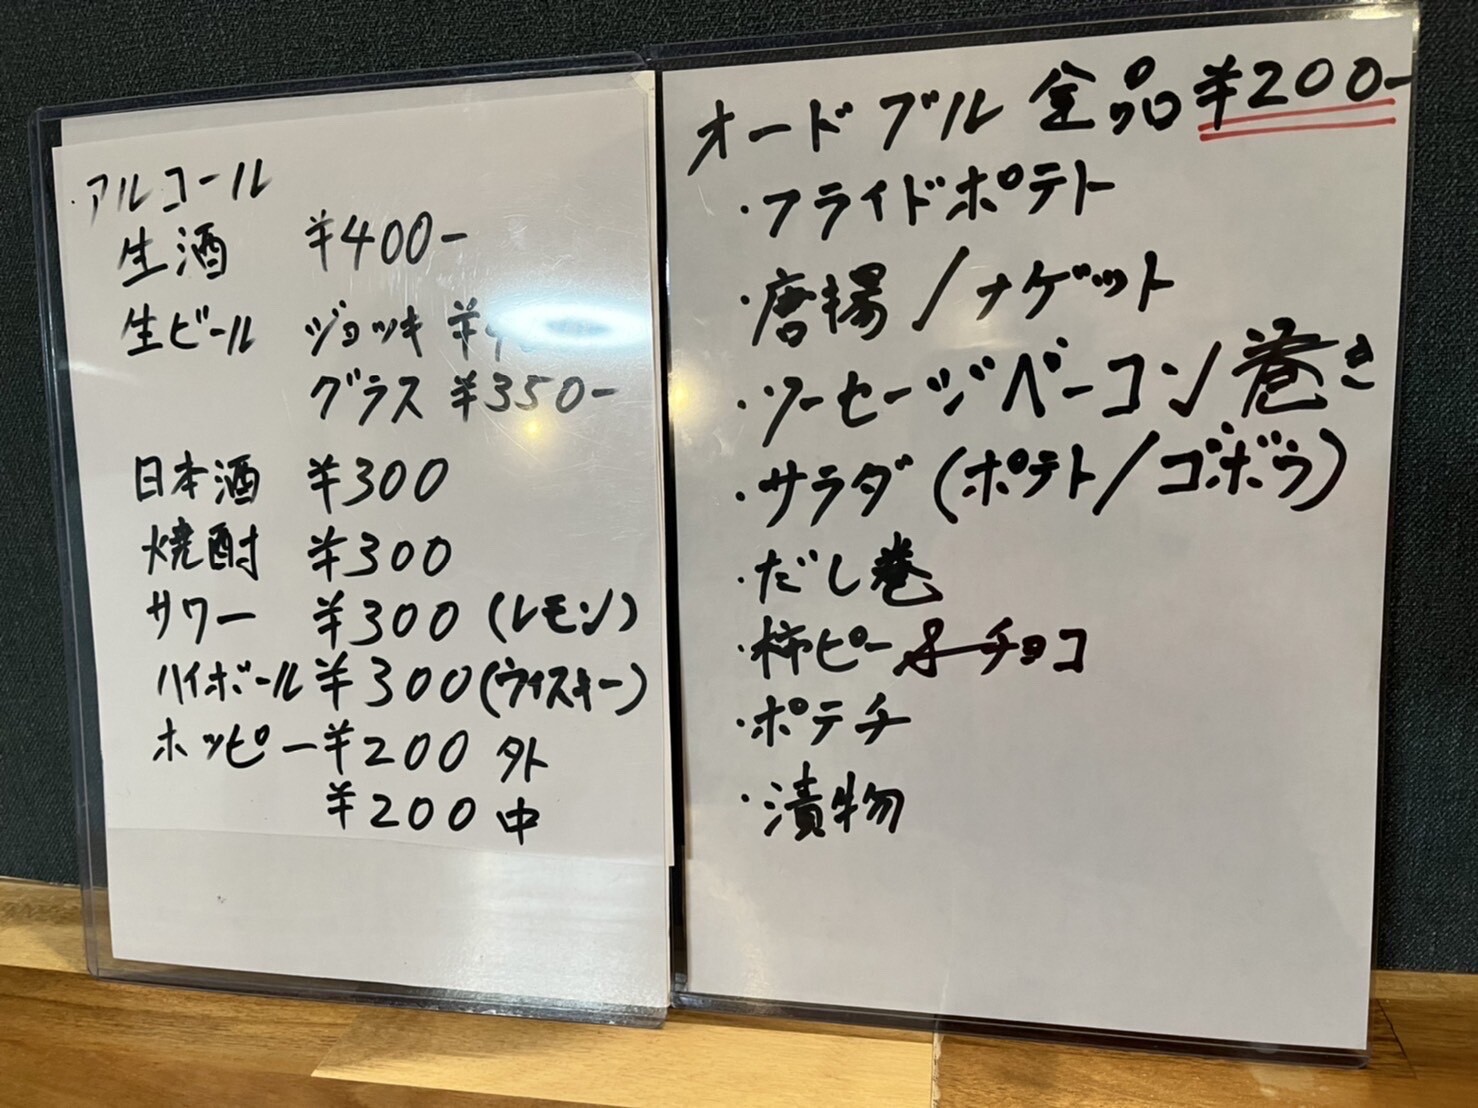 ・アルコール
生酒 ¥400-
生ビール ジョッキ
グラス ¥350-
日本酒 ¥300
焼酎 ¥300
サワー ¥300 (レモン)
ハイボール ¥300 (ウィスキー)
ホッピー ¥200 外
¥200 中
オードブル 全品 ¥200-
・フライドポテト
・唐揚/ナゲット
・ソーセージベーコン巻き
・サラダ (ポテト/ゴボウ)
・だし巻
・柿ピー&チョコ
・ポテチ
・漬物